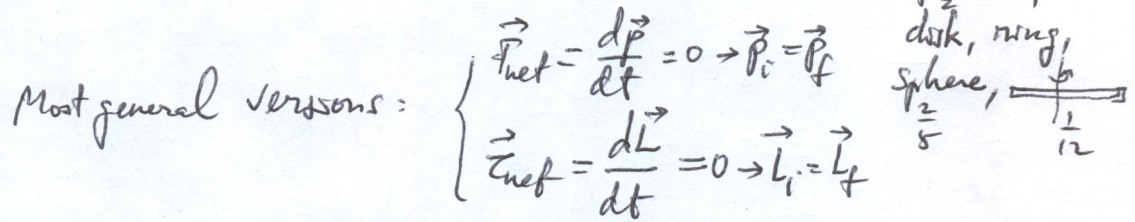 Most general versions:
F⃗net = dp⃗/dt = 0 → p⃗i = p⃗f
τ⃗net = dL⃗/dt = 0 → L⃗i = L⃗f
disk, ring,
sphere,
2/5
1/12